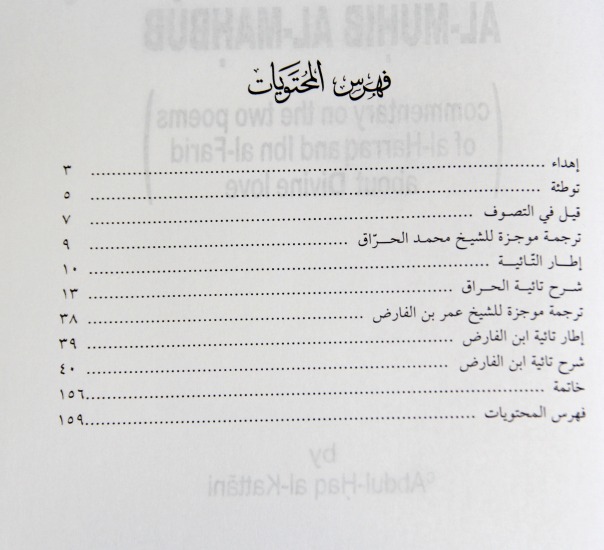 AL-MUHIB AL-MAHBUB
فهرس المحتويات
(commentary on the two poems
of al-Harraq and Ibn al-Farid
about Divine love)
إهداء ........ ٣
توطئة ........ ٥
قيل في التصوف ........ ٧
ترجمة موجزة للشيخ محمد الحرّاق ........ ٩
إطار التّائية ........ ١٠
شرح تائية الحراق ........ ١٣
ترجمة موجزة للشيخ عمر بن الفارض ........ ٣٨
إطار تائية ابن الفارض ........ ٣٩
شرح تائية ابن الفارض ........ ٤٠
خاتمة ........ ١٥٦
فهرس المحتويات ........ ١٥٩
by
ᶜAbdul-Ḥaq al-Kattāni